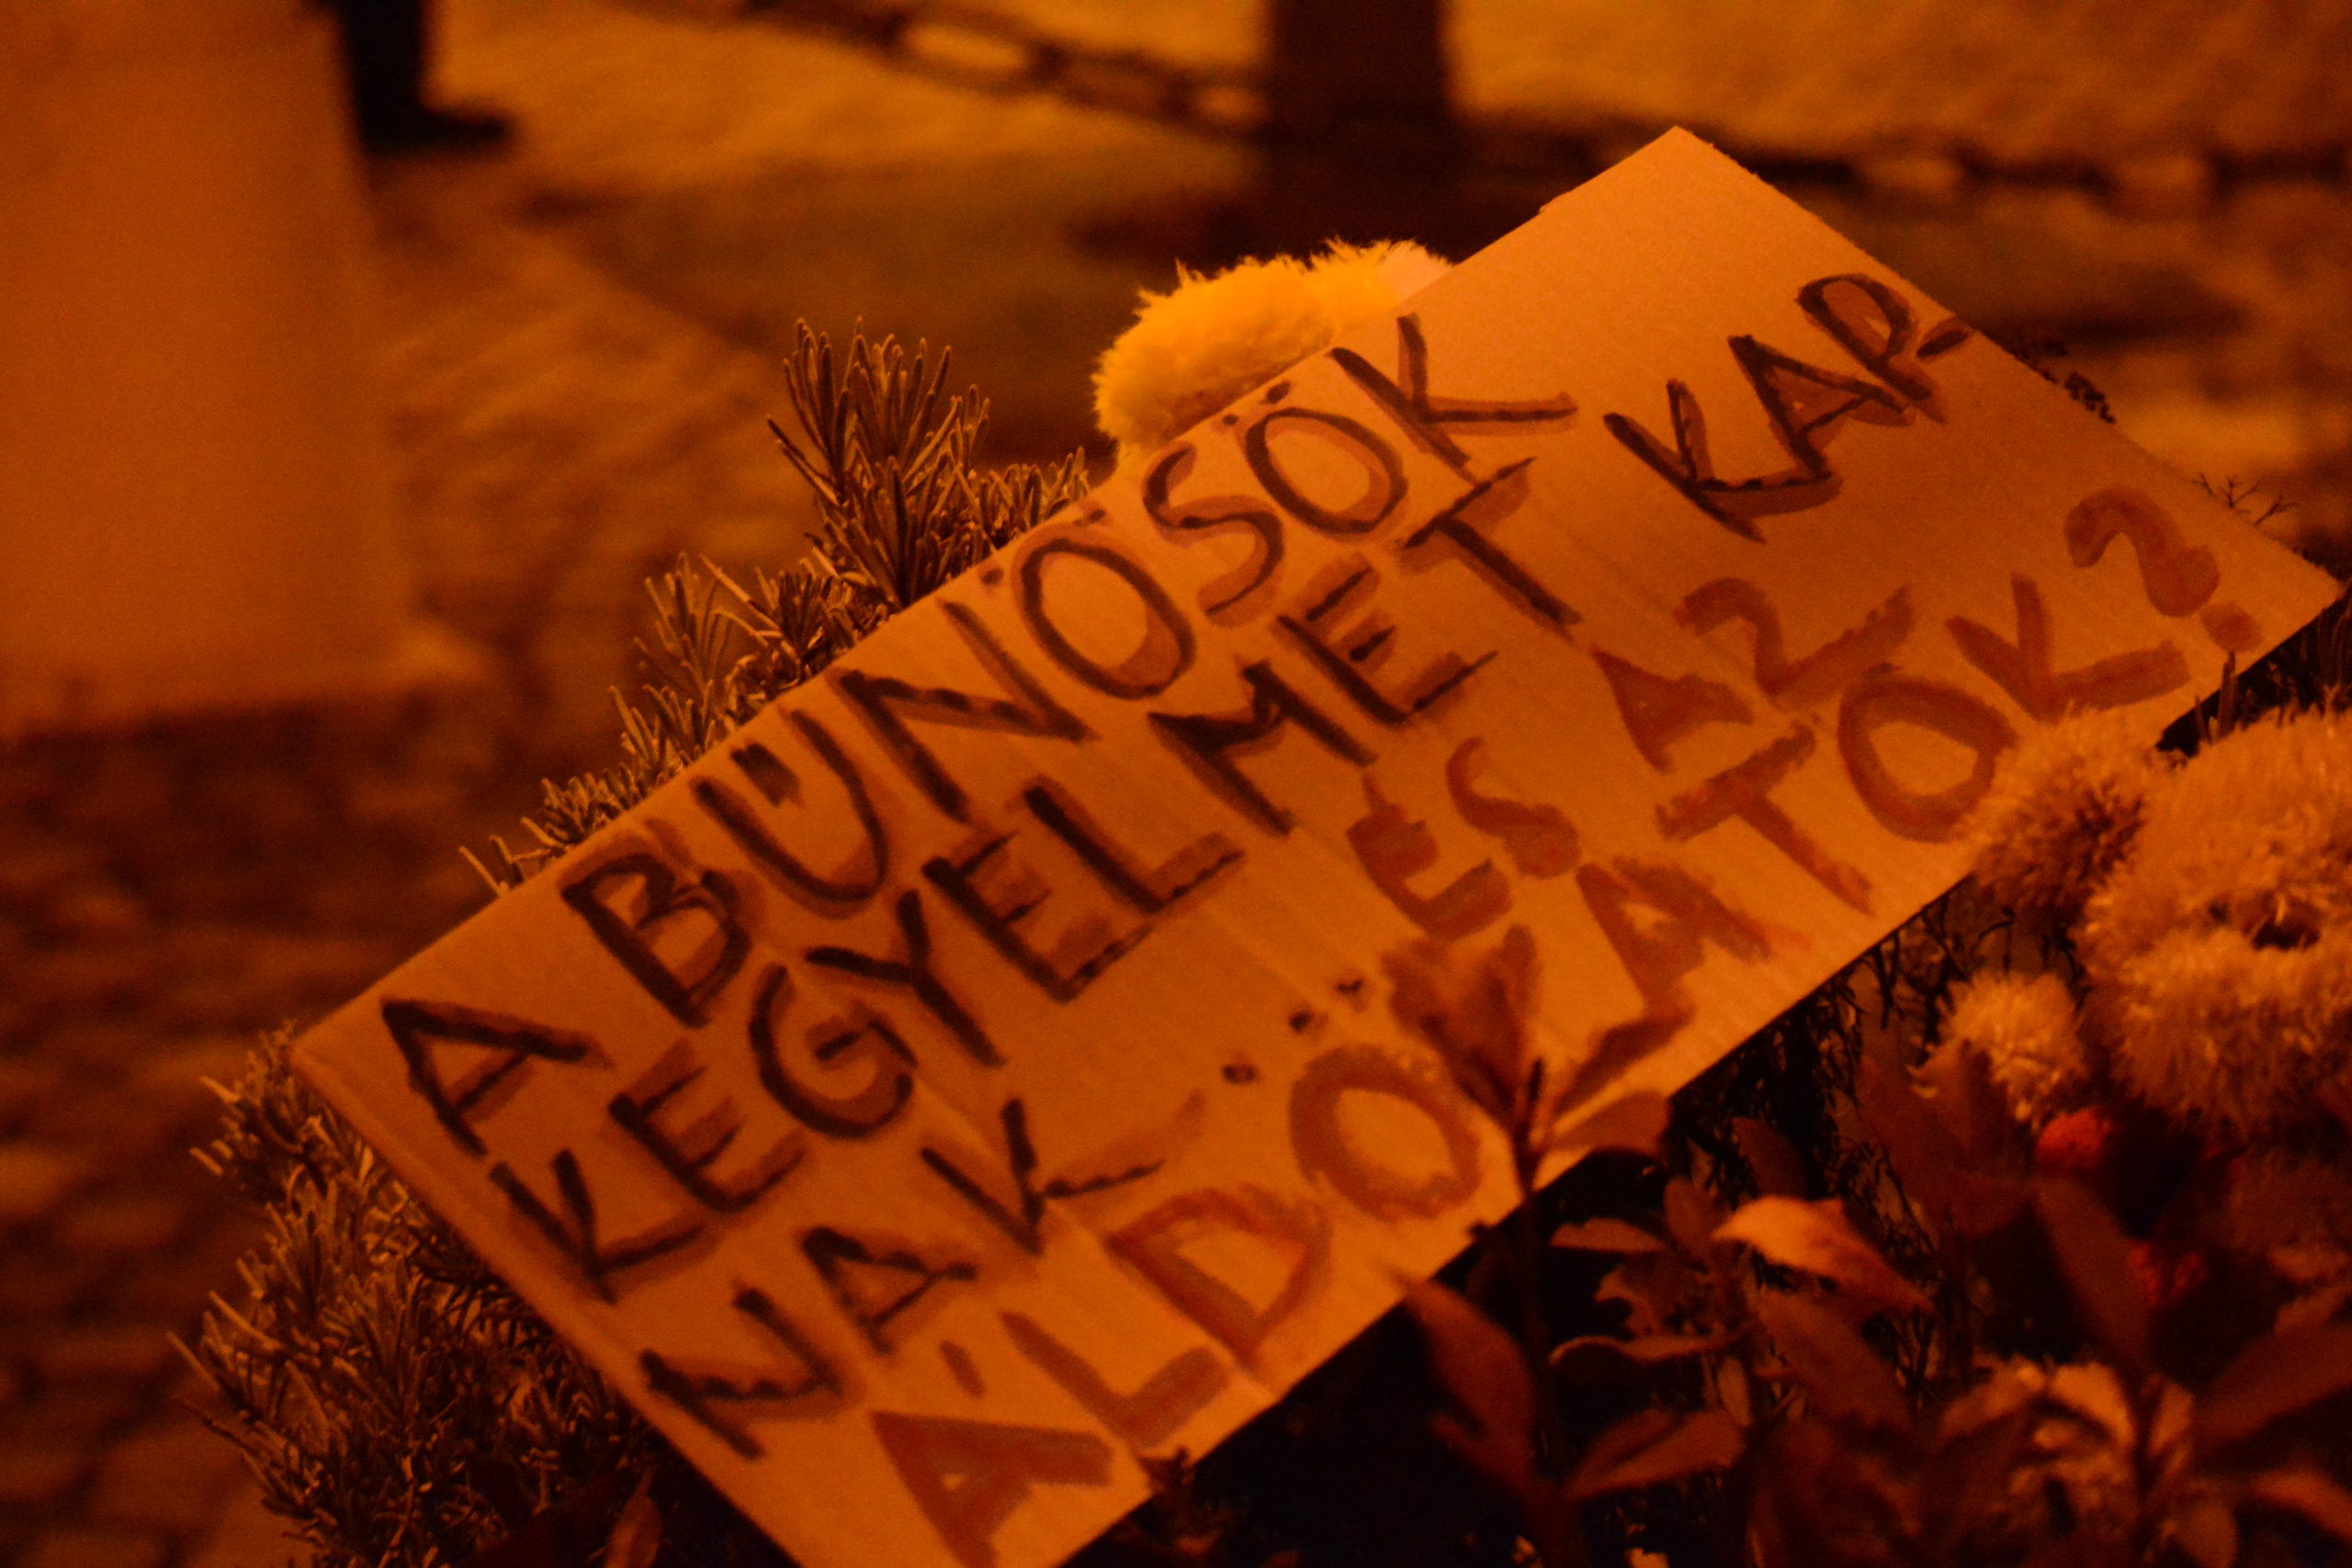 A BŰNÖSÖK
KEGYELMET KAP-
NAK... ÉS AZ
ÁLDOZATOK?